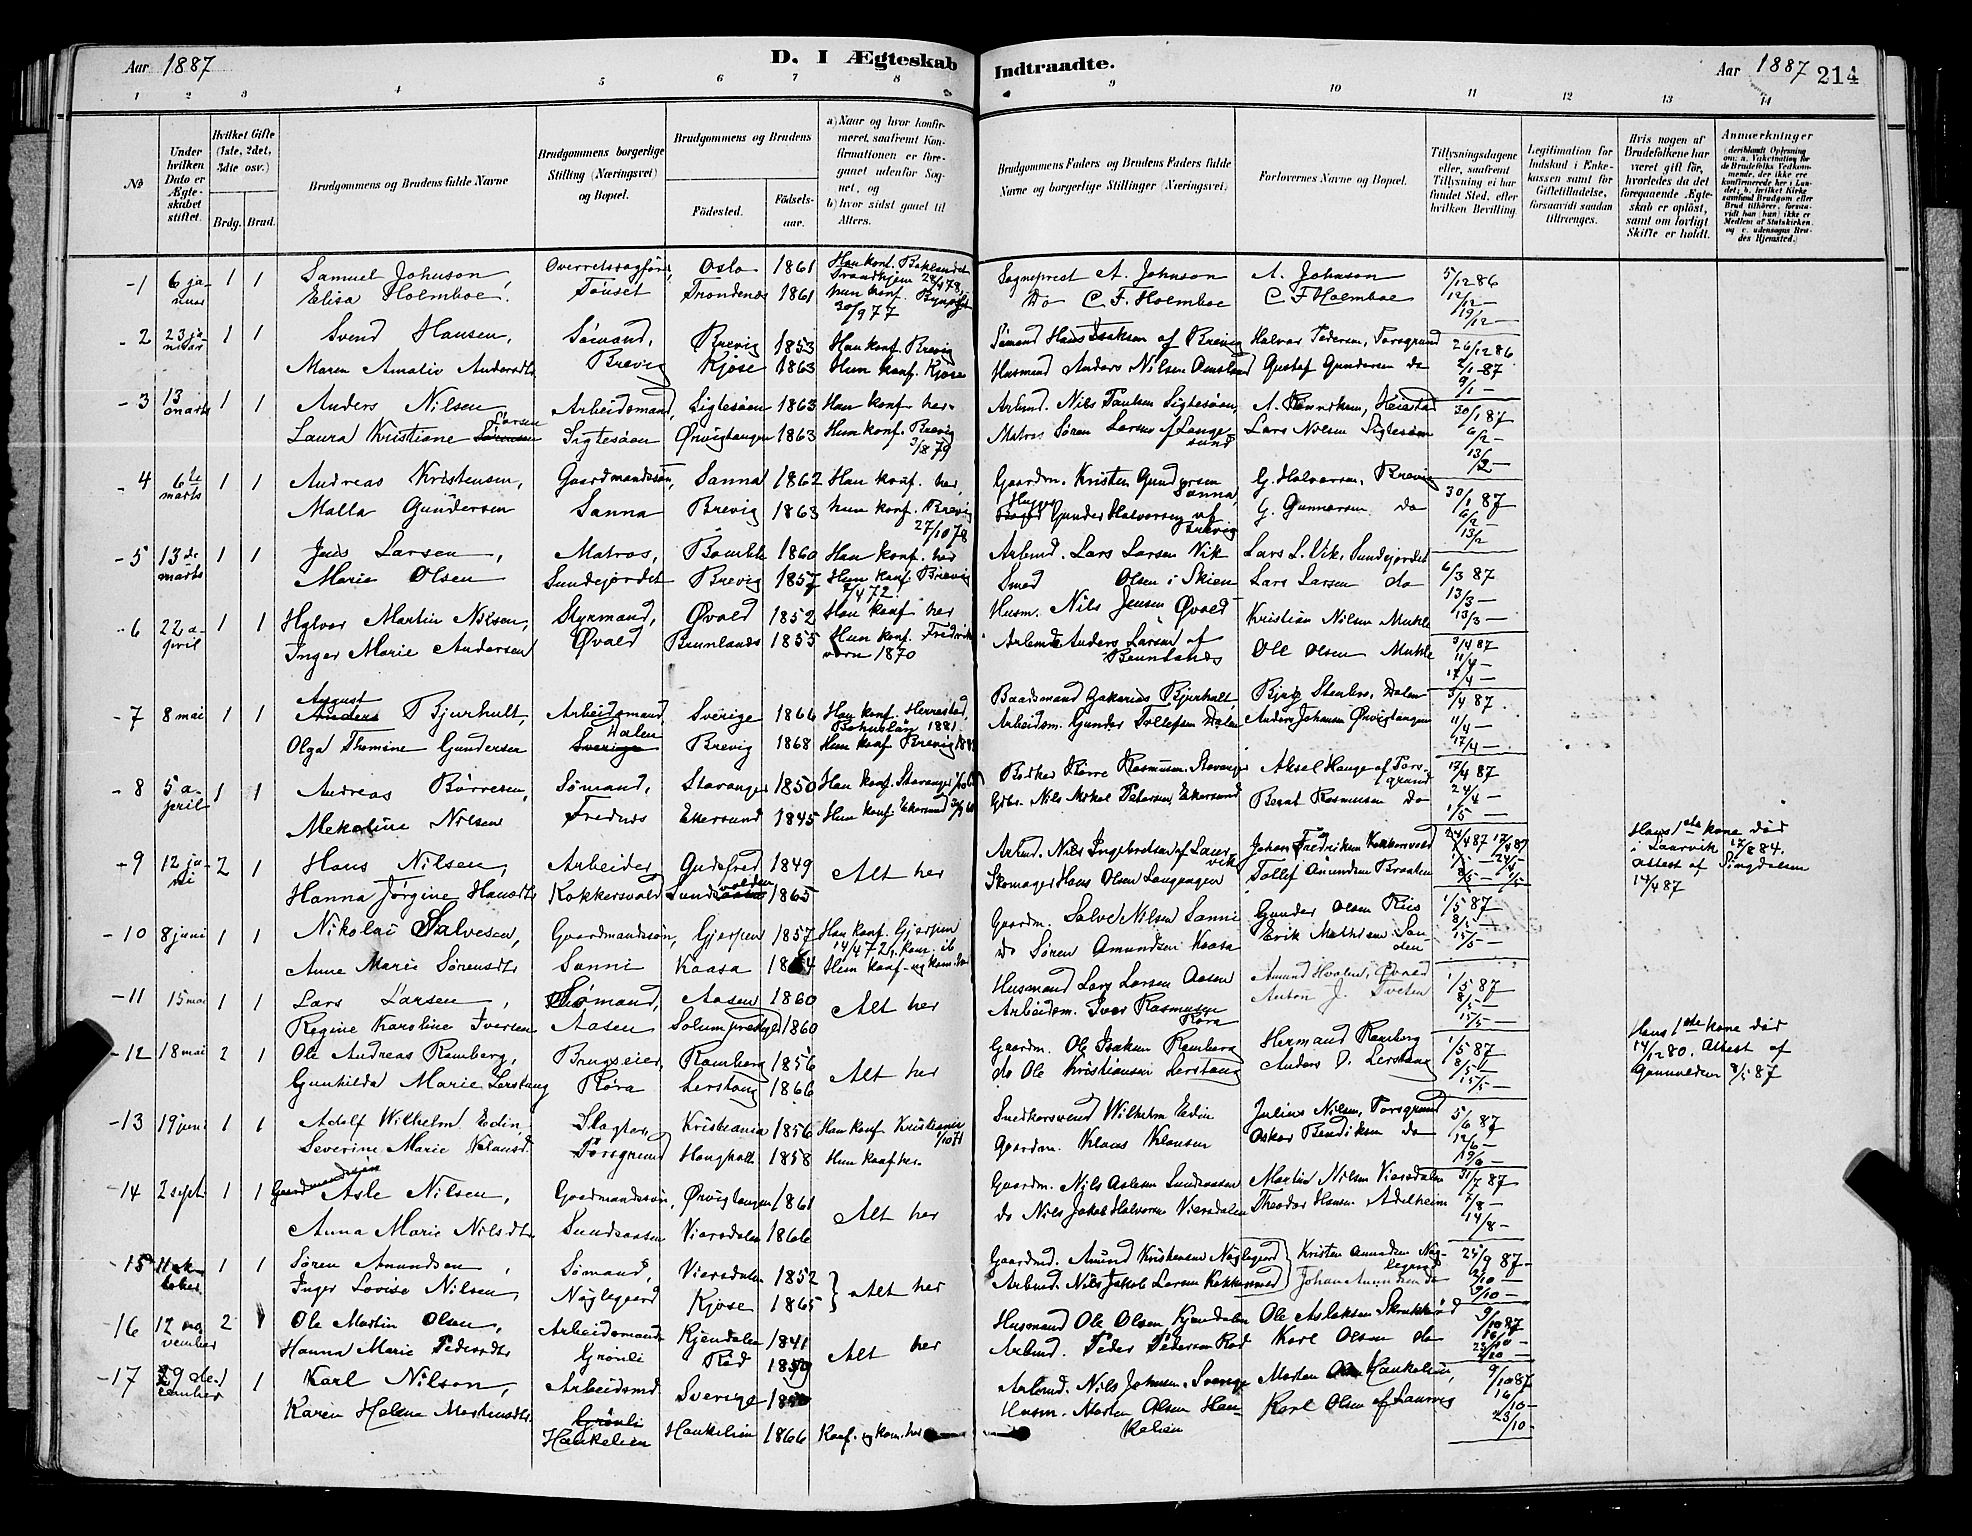 Aar 1887
D. I Ægteskab
Indtraadte.
Aar 1887 214
1 2 3 4 5 6 7 8 9 10 11 12 13 14
No
Under hvilken Dato er Ægteskabet stiftet.
Hvilket Gifte (1ste, 2det, 3die osv.)
Brdg. Brud.
Brudgommens og Brudens fulde Navne
Brudgommens borgerlige Stilling (Næringsvei) og Bopæl.
Brudgommens og Brudens
Födested.
Födselsaar.
a) Naar og hvor konfirmeret, saafremt Konfirmationen er foregaaet udenfor Sognet, og
b) hvor sidst gaaet til Alters.
Brudgommens Faders og Brudens Faders fulde Navne og borgerlige Stillinger (Næringsvei)
Forlovernes Navne og Bopæl.
Tillysningsdagene eller, saafremt Tillysning ei har fundet Sted, efter hvilken Bevilling.
Legitimation for Indskud i Enkekassen samt for Giftetilladelse, forsaavidt saadan tiltrænges.
Hvis nogen af Brudefolkene har været gift för, hvorledes da det foregaaende Ægteskab er oplöst, samt om lovligt Skifte er holdt.
Anmærkninger
1 6 januar 1 1 Samuel Johnson, Overretssagfører, Oslo 1861 Han konf. Baklandet Trondhjem Sogneprest A. Johnson A. Johnson 5/12 86
Elisa Holmboe. Tönset Trondenes 1861 hun konf. 30/9 77 Do C. F. Holmboe C F Holmboe 12/12 –
19/12 –
2 23 januar 1 1 Svend Hansen, Sömand, Brevig 1853 Han konf. Brevig Sömand Hans Isaksen af Brevig Halvor Pedersen, Porsgrund 26/12 86
Maren Amalie Andersdtr Brevig Kjose 1863 Hun konf. Kjose Husmand Anders Nilsen Gustaf Gundersen do 2/1 87
9/1 –
3 13 marts 1 1 Anders Nilsen Arbeidsmand, Sigtesöen 1863 Han konf. her. Arbmd. Nils Paulsen Sigtesöen, A. Henriksen, Heistad 30/1 87
Laura Kristiane Larsen Sigtesöen Ørvigtangen 1863 Hun konf. Brevig 3/8 79 Matros Sören Larsen af Langesund Lars Nilsen Sigtesöen 6/2 –
13/2 –
4 6te marts 1 1 Andreas Kristensen, Gaardmandssön, Sanna 1862 Han konf. her, Gaardm. Kristen Gundersen Sanna, G. Halvorsen, Brevig 30/1 87
Malla Gundersen Sanna Brevig 1863 hun konf. Brevig 27/10 78 Gunder Halvorsen af Brevig G. Gunnarsen do 6/2 –
13/2
5 13de marts 1 1 Jens Larsen, Matros, Bamble 1860 Han konf. her Arbmd. Lars Larsen Vik Lars L. Vik, Sundejordet 6/3 87
Marie Olsen Sundejordet Brevig 1857 Hun konf. Brevig 7/4 72. Smed Olsen i Skien Lars Larsen do 13/3 –
6 22 april 1 1 Halvor Martin Nilsen, Styrmand, Øvald 1852 Han konf her Husm. Nils Jensen Øvald Kristian Nilsen Muhle 3/4 87
Inger Marie Andersen Øvald Brunlanes 1855 Hun konf. Fredriksvern 1870 Arbmd Anders Larsen af Brunlanes Ole Olsen Muhle 11/4 –
17/4 –
7 8 mai 1 1 August Bjurhult, Arbeidsmand, Dalen Sverige 1866 Han konf. Herrestad, Bohuslän 1881 Baadsmand Zakarias Bjurhult, Dalen 3/4 87.
Olga Thomine Gundersen Brevig 1868 Hun konf. Brevig Arbeidsm. Gunder Tollefsen Dalen Anders Johansen Ørvigtangen 11/4 –
17/4 –
8 5 april 1 1 Andreas Börresen, Sömand, Stavanger 1850 Han konf. Stavanger Bödker Börre Rasmusen Stavanger Aksel Hauge af Porsgrund 17/4 87
Mekaline Nilsen Frednes Ekersund 1845 Hun konf. Ekersund Gdbr. Nils Mikal Petersen, Ekersund Bernt Rasmusen do 24/4 –
1/5 –
9 12 juni 2 1 Hans Nilsen, Arbeider, Gudsfred 1849 Alt her Arbmd. Nils Ingebretsen af Laurvik Johan Fredriksen Kokkersvold 24/4 87 17/4 87
Hanna Jörgine Hansdtr Kokkersvold 1865 Skomager Hans Olsen Langangen Tollef Amundsen Braaten
Hans 1ste kone död i Laurvik 12/8 84. attest af Ringdalsen 14/4 87
10 8 juni 1 1 Nikolai Salvesen, Gaardmandssön, Gjerpen 1857 Han konf. Gjerpen 14/4 72, kom. ib Gaardm. Salve Nilsen Sanni Gunder Olsen Riis 1/5 87
Anne Marie Sörensdtr Sanni Kaasa Hun konf. og kom. her do Sören Amundsen Kaasa Erik Mathisen Sanden 8/5 –
15/5 –
11 15 mai 1 1 Lars Larsen, Sömand, Aasen 1860 Alt her Husmand Lars Larsen Aasen Amund Hvalen, Øvald 1/5 87
Regine Karoline Iversen Aasen Solum prestgj 1860 Arbeidsm. Iver Rasmusen Röra Anton J. Tveten 8/5 –
15/5 –
12 18 mai 2 1 Ole Andreas Ramberg, Brugseier, Ramberg 1856 Alt her Gaardm. Ole Isaksen Ramberg Hermand Ramberg 1/5 87
Gunhilda Marie Lerstang Röra Lerstang 1866 do Ole Kristiansen Lerstang Anders O. Lerstang 8/5 –
15/5 –
Hans 1ste kone död 14/12 80. Attest af 8/5 87
13 19 juni 1 1 Adolf Wilhelm Edin, Slagter, Kristiania 1856 Han konf Kristiania 1/10 71 Snedkersvend Wilhelm Edin Julius Nilsen, Porsgrund 5/6 87
Severine Marie Klausdt. Porsgrund Haugholt 1858 Hun konf her. Gaardm. Klaus Klausen Oskar Bendiksen do 12/6 –
19/6 –
14 2 sept. 1 1 Asle Nilsen, Gaardmandssön, Ørvigtangen 1861 Alt her Gaardm. Nils Aslesen Sundsaasen Martin Nilsen Viersdalen 31/7 87
Anna Marie Nilsdtr Sundsaasen Viersdalen 1866 do Nils Jakob Halvorsen Viersdalen Theodor Hansen Adelheim 7/8 –
14/8 –
15 11 oktober 1 1 Sören Amundsen, Sömand, Viersdalen 1852 Alt her Gaardmd. Amund Kristensen Nöglegaard Kristen Amundsen Nöglegaard 25/9 87 –
Inger Lovise Nilsen, Nöglegaard Kjose 1865 Arbmd. Nils Jakob Larsen Kokkersvold Johan Amundsen do 2/10 –
9/10 –
16 12 november 2 1 Ole Martin Olsen, Arbeidsmand Kjendalen 1841 Alt her Husmand Ole Olsen Kjendalen Ole Aslaksen 9/10 87
Hanna Marie Pedersdtr Grönli Röd 1859 Arbmd. Peder Pedersen Röd Karl Olsen do 16/10 –
17 29 december 1 Karl Nilsen, Arbeidsmd Sverige Arbmd. Nils Johnsen, Sverige Morten Haukelien, 9/10 87
Karen Helene Mortensdtr Grönli Haukelien Haukelien 1866 Konf. og kom. her Husm. Morten Olsen Haukelien Karl Olsen af Laurvig 16/10 –
23/10 –